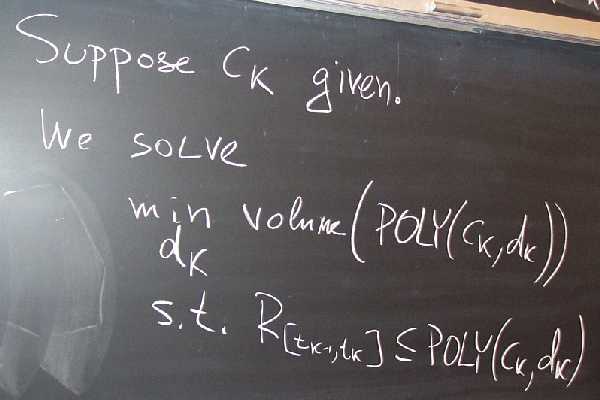 Suppose C_K given.
We solve
min volume(POLY(C_K, d_K))
d_K
s.t. R_[t_K-1, t_K] ⊆ POLY(C_K, d_K)